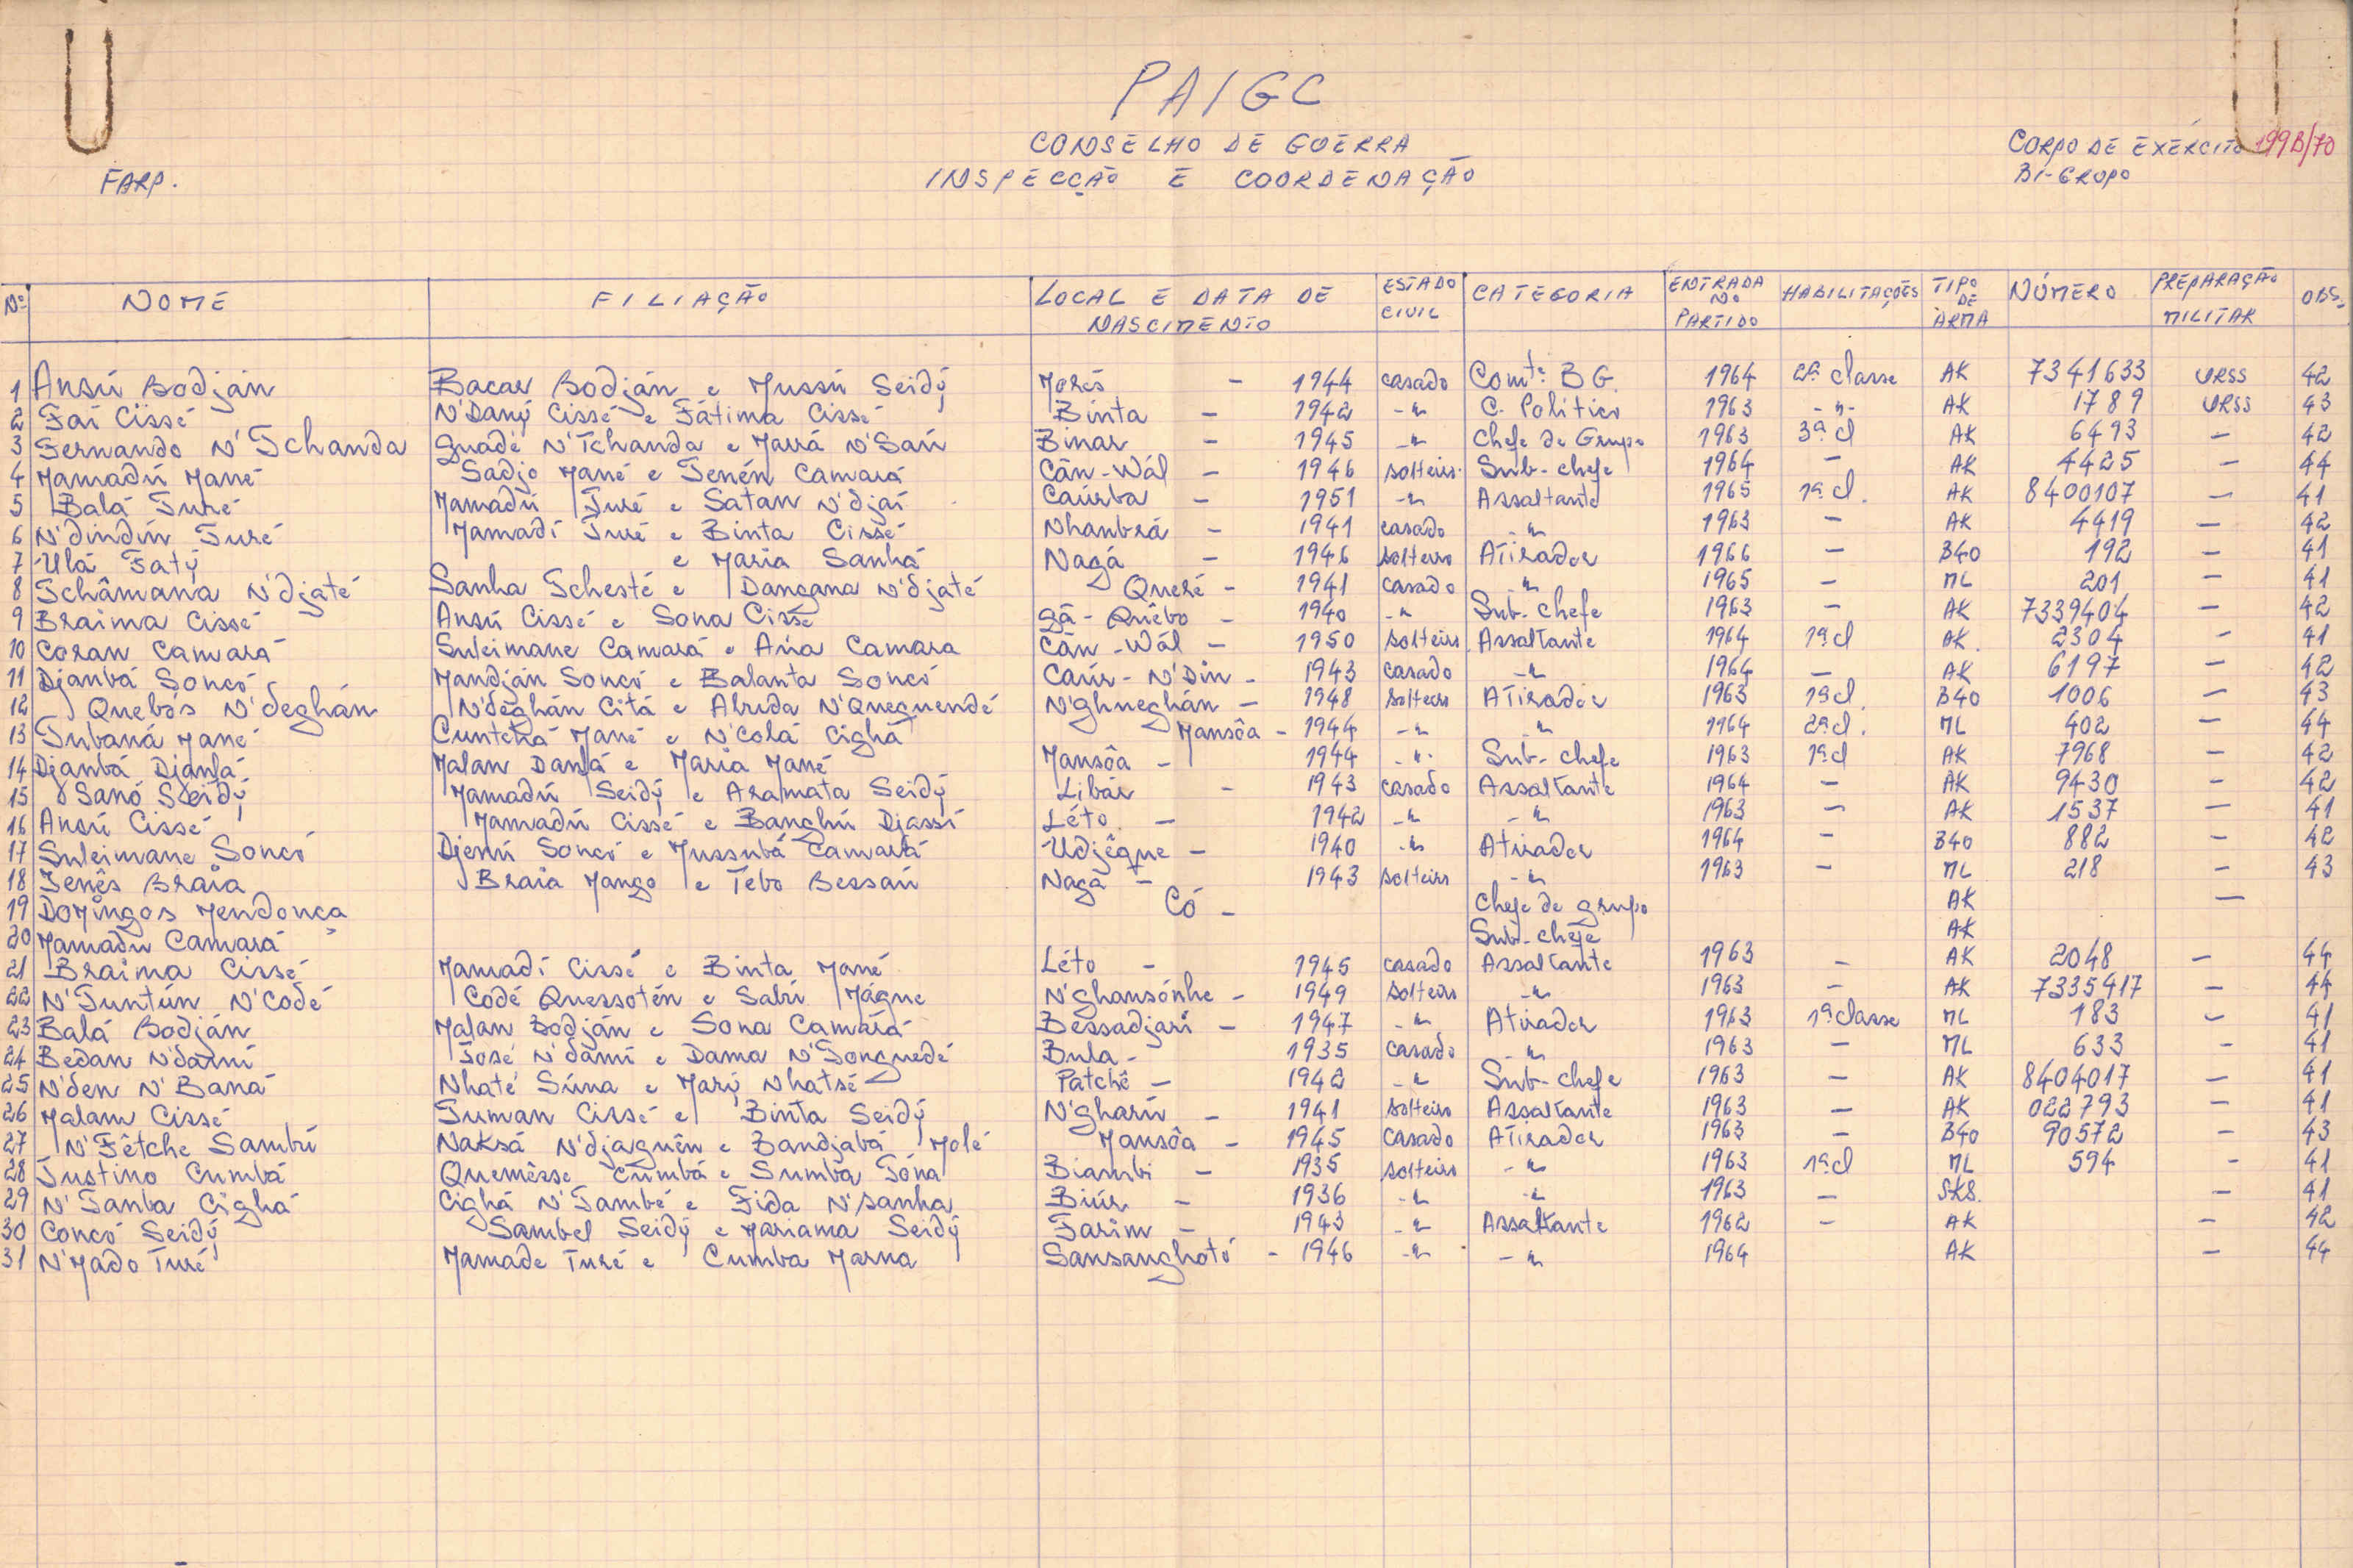 PAIGC
CONSELHO DE GUERRA
CORPO DE EXÉRCITO 199B/70
FARP. INSPECÇÃO E COORDENAÇÃO BI-GRUPO
Nº NOME FILIAÇÃO LOCAL E DATA DE NASCIMENTO ESTADO CIVIL CATEGORIA ENTRADA NO PARTIDO HABILITAÇÕES TIPO DE ARMA NÚMERO PREPARAÇÃO MILITAR OBS.
1 Ansú Bodján Bacar Bodján e Mussú Seidý Morés - 1944 casado Comte. BG. 1964 2ª classe AK 7341633 URSS 42
2 Faí Cissé N'Daný Cissé e Fátima Cissé Binta - 1942 -"- C. Político 1963 -"- AK 1789 URSS 43
3 Fernando N'Tchanda Guadé N'Tchanda e Marrá N'Saú Binar - 1945 -"- Chefe de Grupo 1963 3ª cl AK 6493 - 42
4 Mamadú Mané Sadjo Mané e Tenén Camará Cân-Wál - 1946 solteiro Sub-chefe 1964 - AK 4425 - 44
5 Balá Turé Mamadú Turé e Satan N'djaí Caúrba - 1951 -"- Assaltante 1965 1ª cl. AK 8400107 - 41
6 N'dindín Turé Mamadí Turé e Binta Cissé Nhanbrá - 1941 casado -"- 1963 - AK 4419 - 42
7 Ulá Fatý e Maria Sanhá Nagá - 1946 solteiro Atirador 1966 - B40 192 - 41
8 Tchâmana N'djaté Sanha Tchesté e Dangana N'djaté Queré - 1941 casado -"- 1965 - ML 201 - 41
9 Braima Cissé Ansú Cissé e Sona Cissé Gã-Quêbo - 1940 -"- Sub-chefe 1963 - AK 7339404 - 42
10 Coran Camará Suleimane Camará e Ana Camara Cân-Wál - 1950 solteiro Assaltante 1964 1ª cl AK 2304 - 41
11 Djanbá Soncó Mandján Soncó e Balanta Soncó Caúr-N'Din - 1943 casado -"- 1964 - AK 6197 - 42
12 Quebós N'deghán N'deghán Citá e Abuda N'Quequendé N'ghueghán - 1948 solteiro Atirador 1963 1ª cl. B40 1006 - 43
13 Tubaná Mané Cuntchá Mané e N'Colá Cighá Mansôa - 1944 -"- -"- 1964 2ª cl. ML 402 - 44
14 Djanbá Djanfá Malan Danfá e Maria Mané Mansôa - 1944 -"- Sub-chefe 1963 1ª cl AK 7968 - 42
15 Sanó Seidý Mamadú Seidý e Aramata Seidý Libár - 1943 casado Assaltante 1964 - AK 9430 - 42
16 Ansú Cissé Mamadú Cissé e Banghú Djassí Léto - 1942 -"- -"- 1963 - AK 1537 - 41
17 Suleimane Soncó Djenú Soncó e Mussubá Camará Udjêque - 1940 -"- Atirador 1964 - B40 882 - 42
18 Jenês Braia Braia Mango e Tebo Bessaú Nagá - 1943 solteiro -"- 1963 - ML 218 - 43
19 Domingos Mendonça Có - Chefe de grupo AK -
20 Mamadú Camará Sub-chefe AK
21 Braima Cissé Mamadí Cissé e Binta Mané Léto - 1945 casado Assaltante 1963 - AK 2048 - 44
22 N'Tuntún N'Codé Codé Quessotén e Sabú Mágue N'ghansónhe - 1949 solteiro -"- 1963 - AK 7335417 - 44
23 Balá Bodján Malan Bodján e Sona Camará Bessadjari - 1947 -"- Atirador 1963 1ª classe ML 183 - 41
24 Bedan N'damí José N'damí e Dama N'Tonguedé Bula - 1935 casado -"- 1963 - ML 633 - 41
25 N'den N'Baná Nhaté Súna e Marý Nhatsé Patchê - 1942 -"- Sub-chefe 1963 - AK 8404017 - 41
26 Malam Cissé Tuman Cissé e Binta Seidý N'gharú - 1941 solteiro Assaltante 1963 - AK 022793 - 41
27 N'Fêtche Sambú Naksá N'djaguên e Bandjabá Molé Mansôa - 1945 casado Atirador 1963 - B40 90572 - 43
28 Justino Cumbá Quemêsse Cumbá e Sumba Tóna Biambi - 1935 solteiro -"- 1963 1ª cl ML 594 - 41
29 N'Tanba Cighá Cighá N'També e Fida N'sanha Biúr - 1936 -"- -"- 1963 - SKS. - 41
30 Concó Seidý Sambel Seidý e Mariama Seidý Farim - 1943 -"- Assaltante 1962 - AK - 42
31 N'Mado Turé Mamade Turé e Cumba Marna Sansanghotó - 1946 -"- -"- 1964 AK - 44